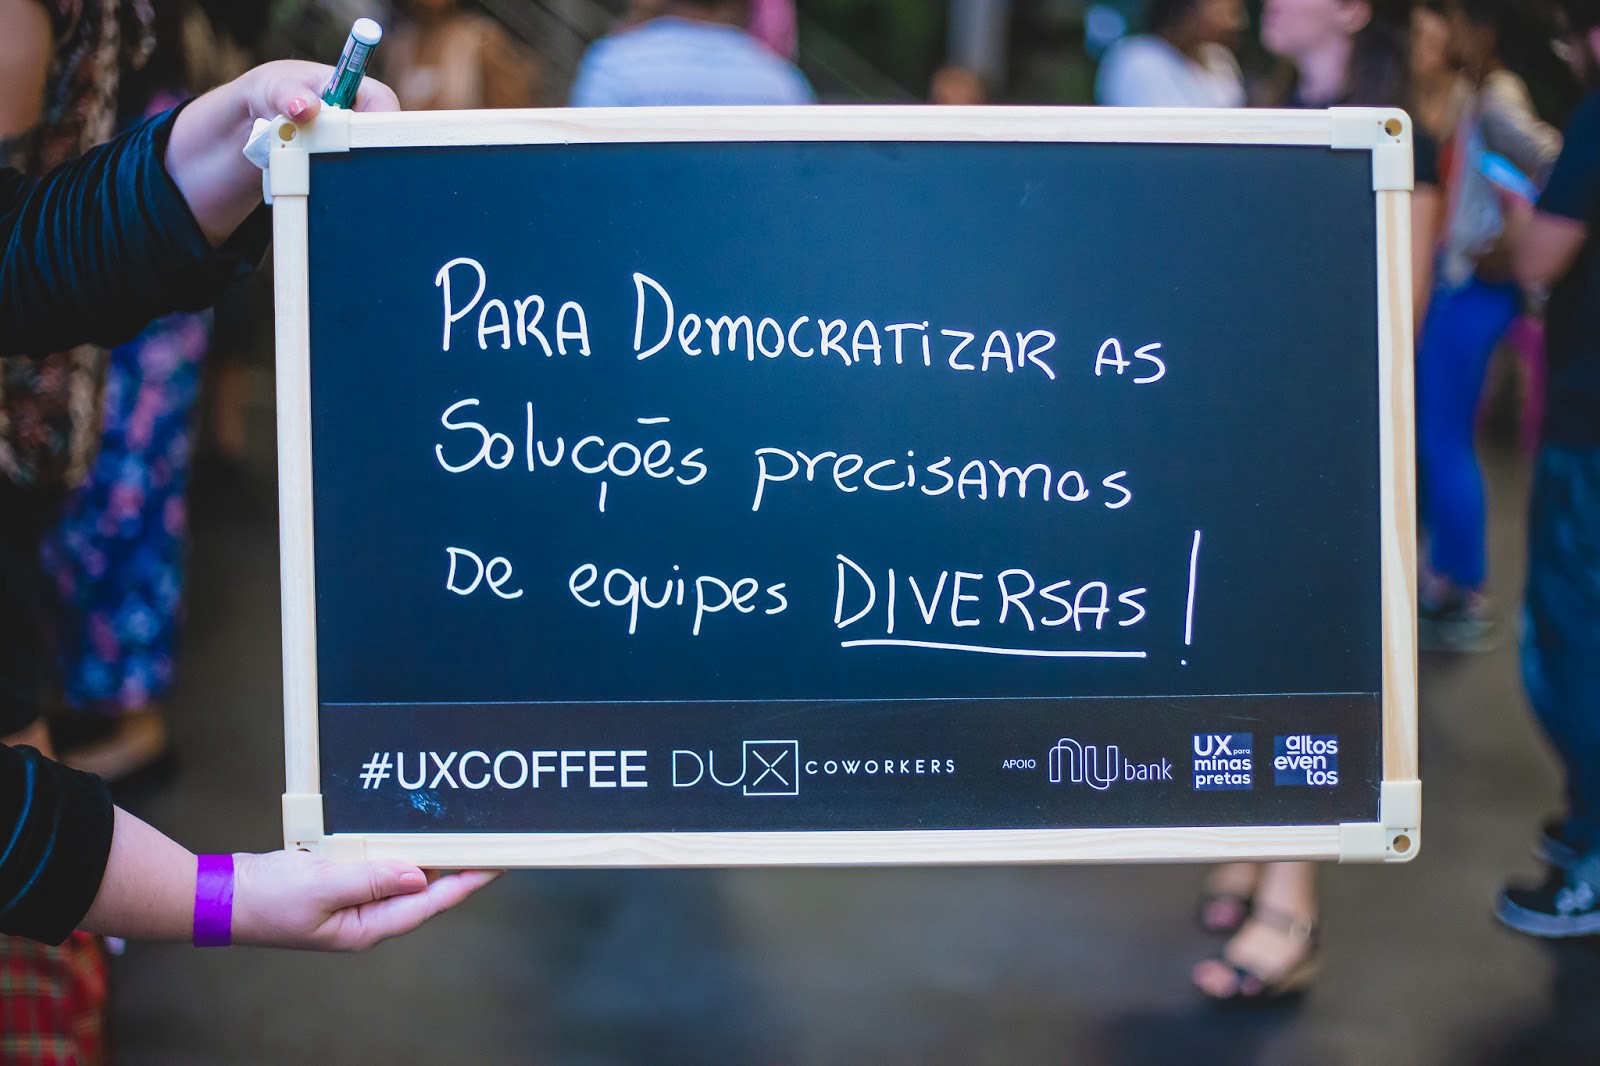 PARA DEMOCRATIZAR AS
SOLUÇÕES PRECISAMOS
DE EQUIPES DIVERSAS!
#UXCOFFEE DUX COWORKERS APOIO nubank
UX para
minas
pretas
altos
even
tos